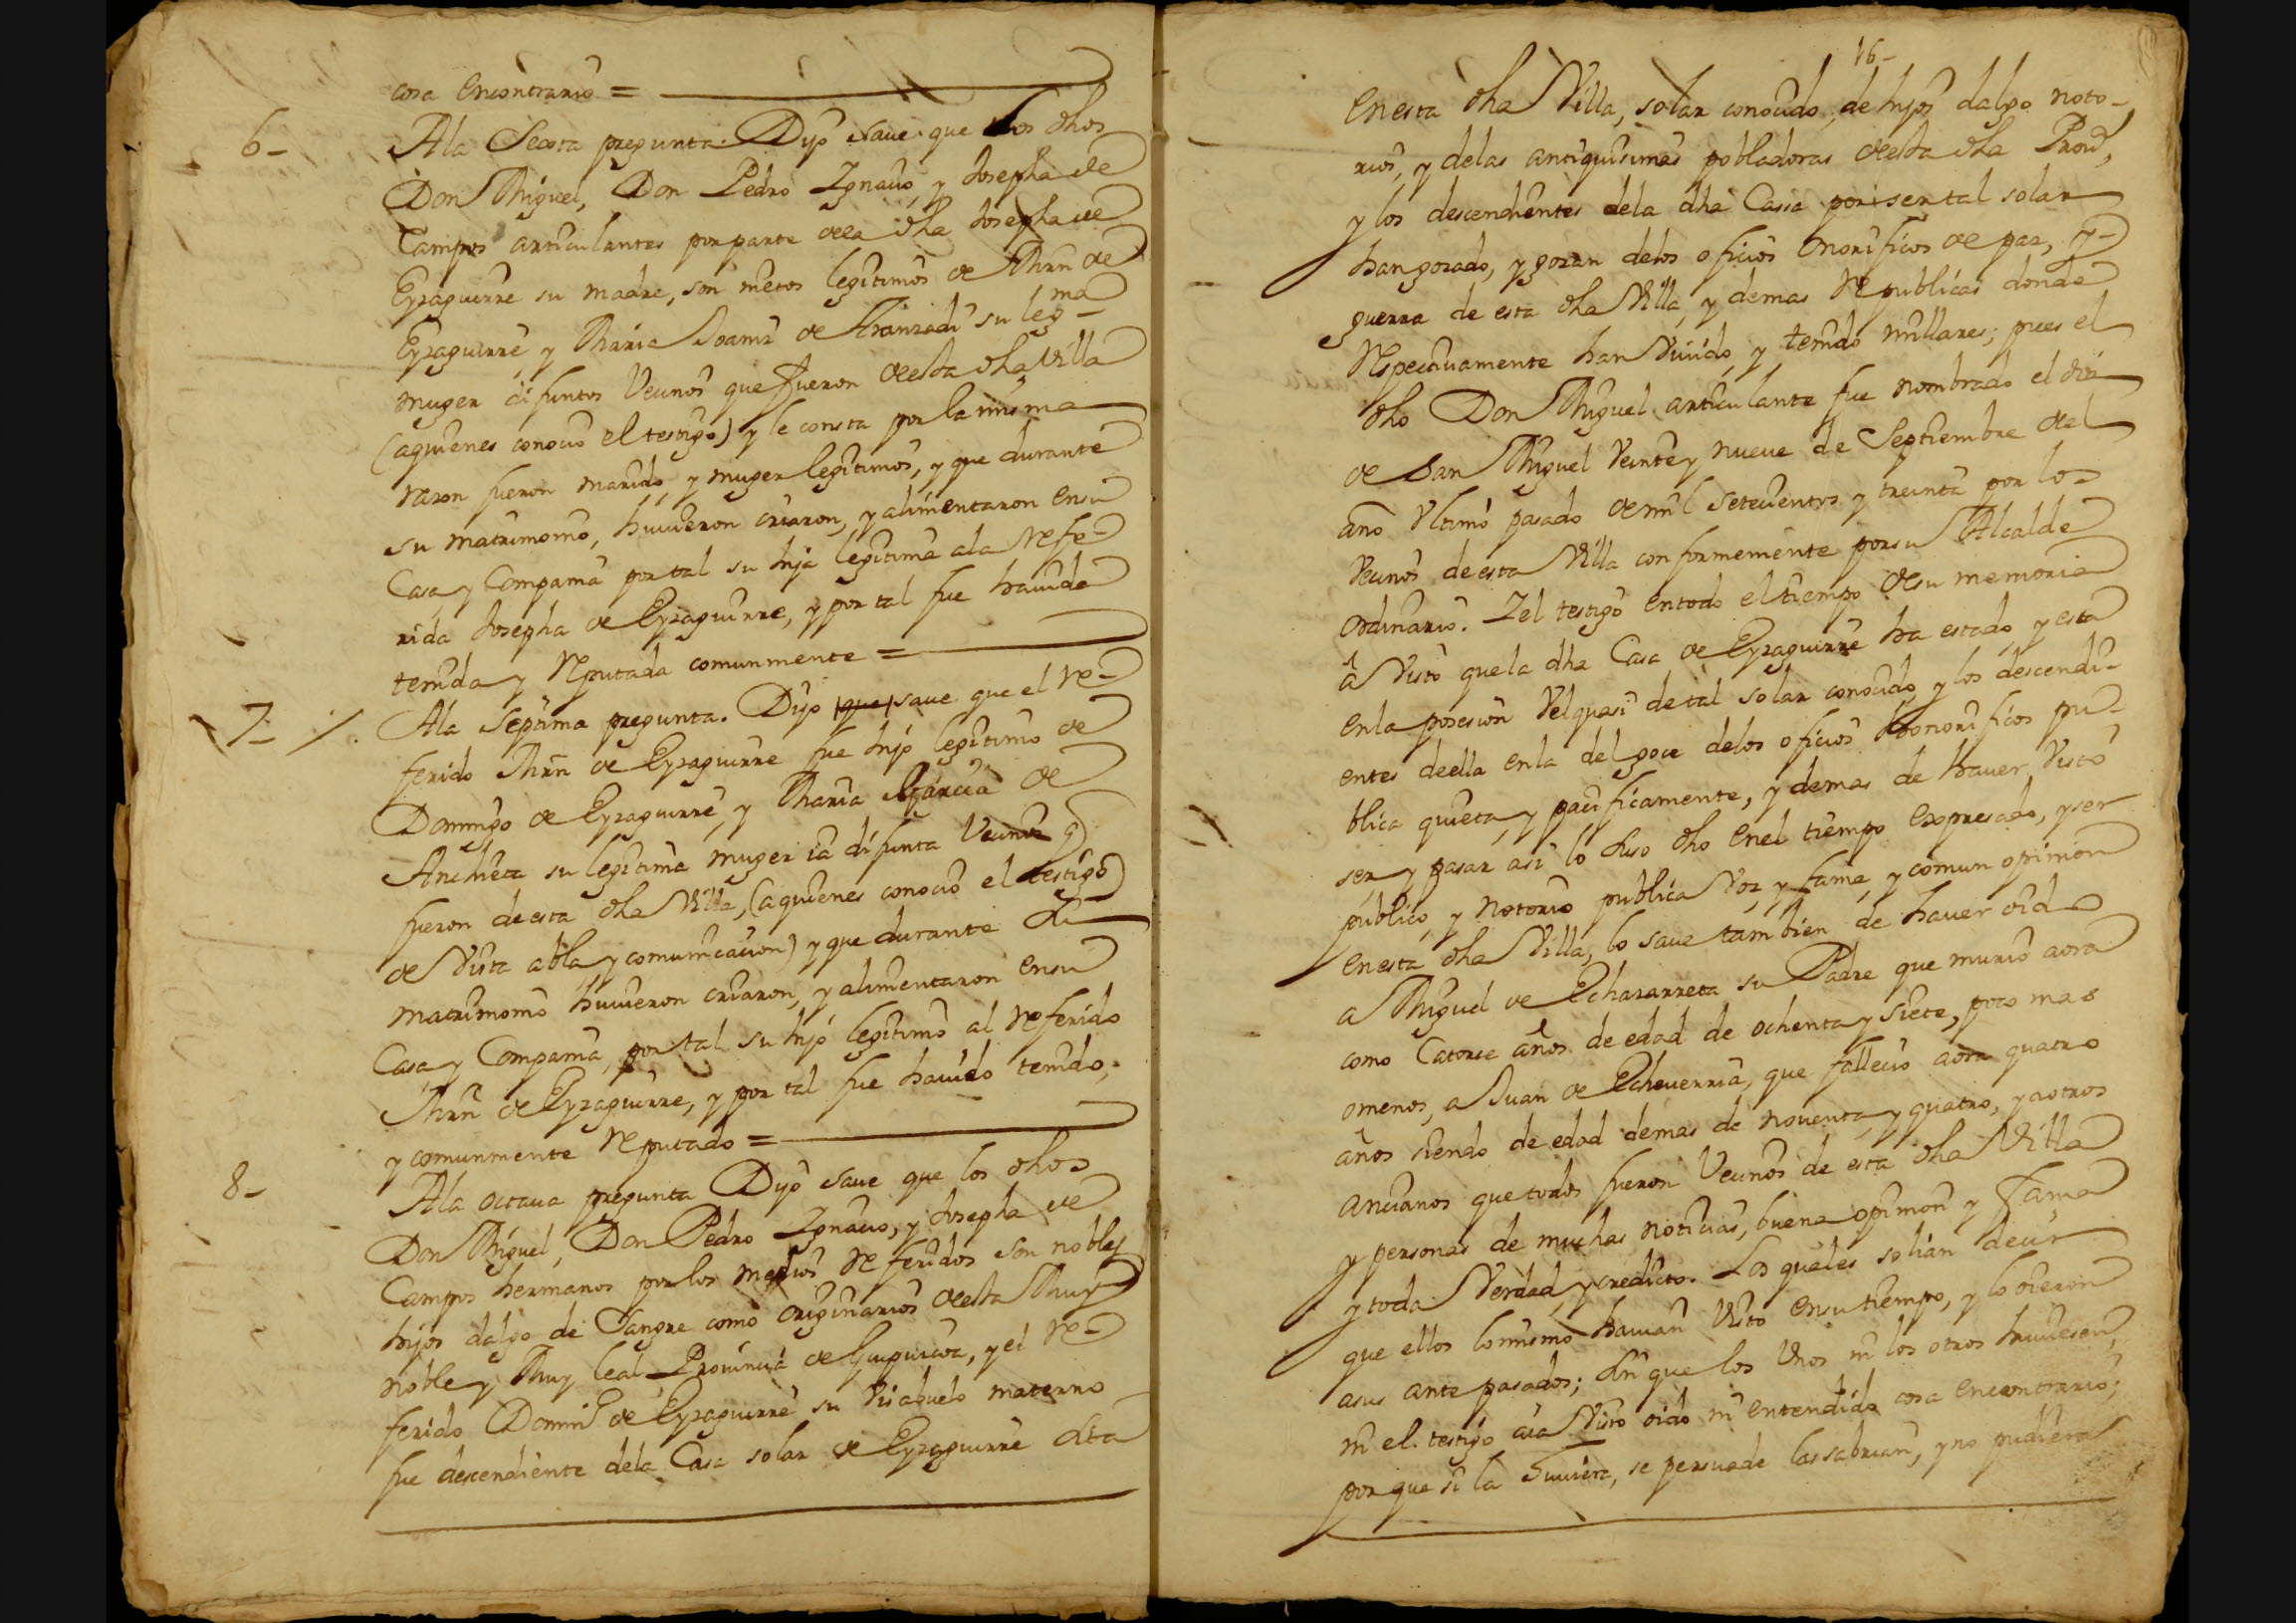 cosa encontrario =
6- Ala Sexta pregunta. Dijo save que los dhos
Don Miguel, Don Pedro Ignacio, y Josepha de
Campos articulantes por parte dela dha Josepha de
Eyzaguirre su madre, son nietos legitimos de Mrn de
Eyzaguirre, y Maria Joanez de Aranzadi su legma
muger difuntos Vecinos que fueron de esta dha Villa
(aquienes conocio el testigo) y le consta por la misma
razon fueron marido, y muger legitimos, y que durante
su matrimonio, huvieron criaron, y alimentaron ensu
Casa, y Compania por tal su hija legitima ala refe-
rida Josepha de Eyzaguirre, y por tal fue havida
tenida, y Reputada comunmente =
7- /. Ala Septima pregunta. Dijo que save que el re-
ferido Mrn de Eyzaguirre fue hijo legitimo de
Domingo de Eyzaguirre, y Maria Garcia de
Anchieta su legitima muger ia difunta Vecinos q
fueron de esta dha Villa, (aquienes conocio el testigo)
de Vista abla, y comunicacion) y que durante su
matrimonio huvieron criaron, y alimentaron ensu
Casa, y Compania, por tal su hijo legitimo al Referido
Mrn de Eyzaguirre, y por tal fue havido tenido,
y comunmente Reputado =
8- Ala octava pregunta Dijo save que los dhos
Don Miguel, Don Pedro Ignacio, y Josepha de
Campos hermanos por los medios Referidos son nobles
hijos dalgo de Sangre como originarios de esta Muy
noble y Muy leal Provincia de Guipuzcoa, y el re-
ferido Domingo de Eyzaguirre su Visabuelo materno
fue descendiente dela Casa solar de Eyzaguirre sita
16-
en esta dha Villa, solar conocido, de hijos dalgo noto-
rios, y delas antiquisimas pobladoras de esta dha Prova,
y los descendientes dela dha Cassa por ser tal solar
han gozado, y gozan delos oficios onorificos de paz, y
guerra de esta dha Villa, y demas Republicas donde
Respectivamente han Vivido, y tenido millares; pues el
dho Don Miguel articulante fue nombrado el dia
de San Miguel Veinte y nueve de Septiembre del
año Vltimo pasado de mil setecientos y treinta por los
Vecinos de esta Villa conformemente por su Alcalde
ordinario. I el testigo entodo el tiempo de su memoria
â Visto que la dha Casa de Eyzaguirre ha estado, y esta
enla posesion Velquasi de tal solar conocido, y los descendi-
entes deella enla del goce delos oficios honorificos pu-
blica quieta, y pacificamente, y demas de haver Visto
ser y pasar asi lo suso dho enel tiempo expresado, y ser
publico, y notorio publica Voz, y fama, y comun opinion
en esta dha Villa, lo save tambien de haver oido
a Miguel de Echazarreta su Padre que murio aora
como Catorce años de edad de ochenta y siete, poco mas
omenos, a Juan de Echeverria, que fallecio aora quatro
años siendo de edad demas de noventa, y quatro, y aotros
ancianos que todos fueron Vecinos de esta dha Villa
y personas de muchas noticias, buena opinion y Fama
y toda Verdad, y credicto. Los quales solian decir
que ellos lo mismo havian Visto en su tiempo, y lo oieron
asus ante pasados; sin que los Unos ni los otros huviesen,
ni el testigo aia Visto oido ni entendido cosa encontrario;
por que si la huviera, se persuade las sabrian, y no pudiera